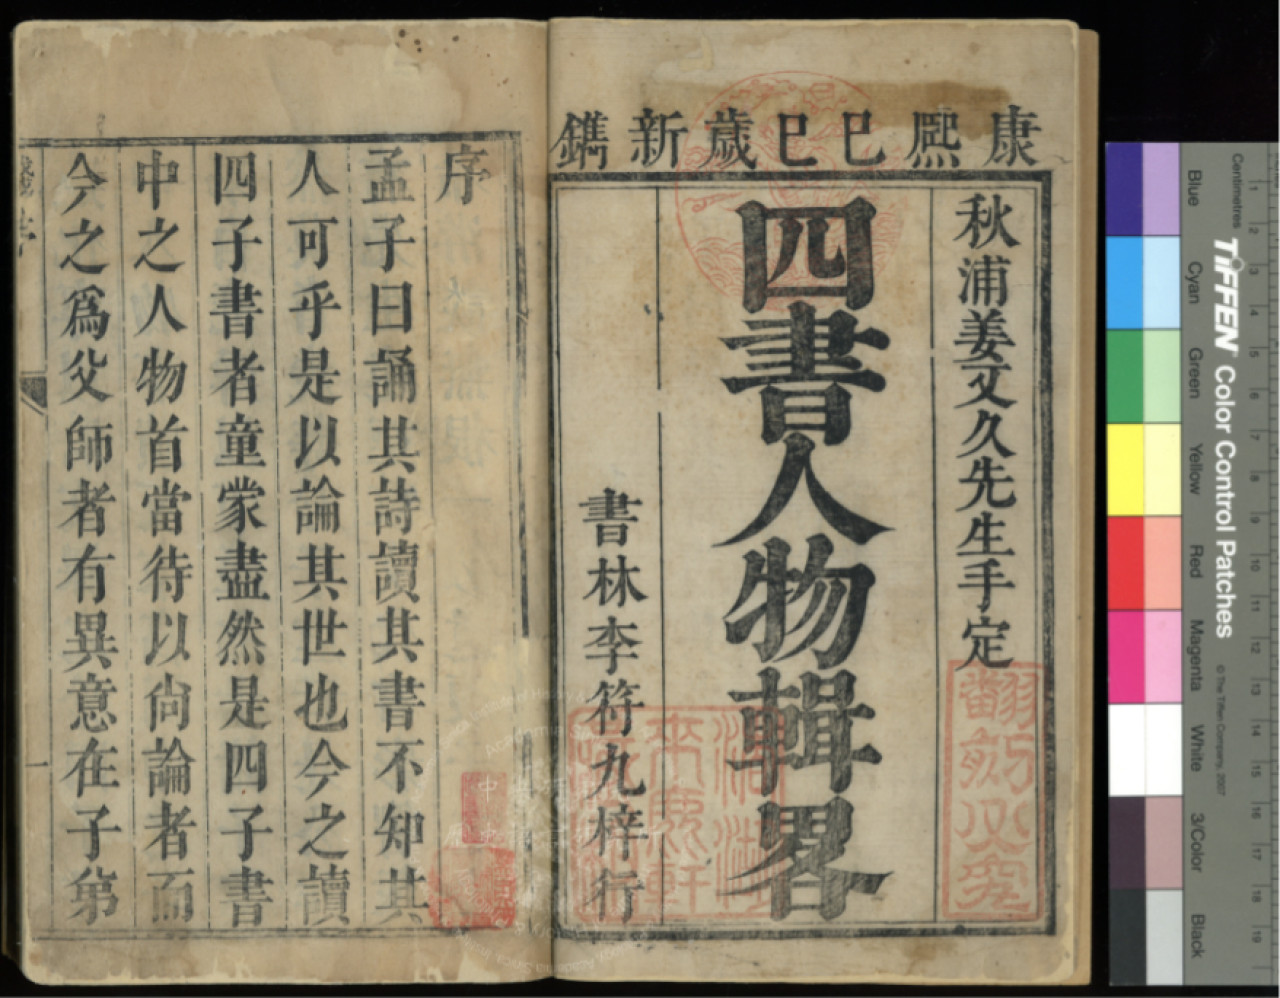 康熙己巳歲新鐫
秋浦姜文久先生手定
四書人物輯畧
書林李符九梓行
翻刻必究
序
孟子曰誦其詩讀其書不知其
人可乎是以論其世也今之讀
四子書者童蒙盡然是四子書
中之人物首當待以尙論者而
今之爲父師者有異意在子第
一
Centimetres
1 2 3 4 5 6 7 8 9 10 11 12 13 14 15 16 17 18 19
TIFFEN Color Control Patches
© The Tiffen Company, 2007
Blue
Cyan
Green
Yellow
Red
Magenta
White
3/Color
Black